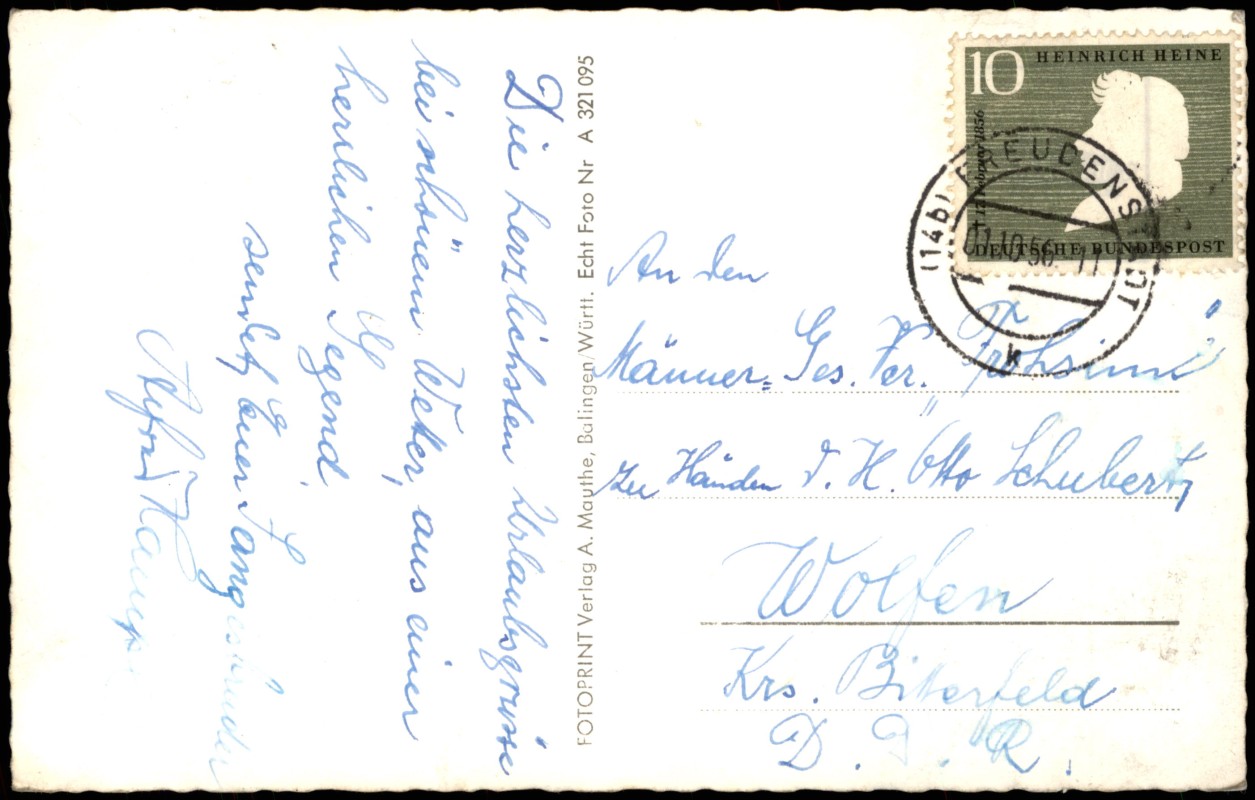 Die herzlichsten Urlaubsgrüsse
bei schönem Wetter, aus einer
herrlichen Gegend.
sendet euer Sangesbruder
FOTOPRINT Verlag A. Mauthe, Balingen/Württ. Echt Foto Nr A 321 095
10 HEINRICH HEINE
† 17. Februar 1856
DEUTSCHE BUNDESPOST
(14b) FREUDENSTADT
56. 11
k
An den
Männer-Ges. Ver. "Frohsinn"
zu Händen d. H. Otto Schubert,
Wolfen
Krs. Bitterfeld
D. D. R.